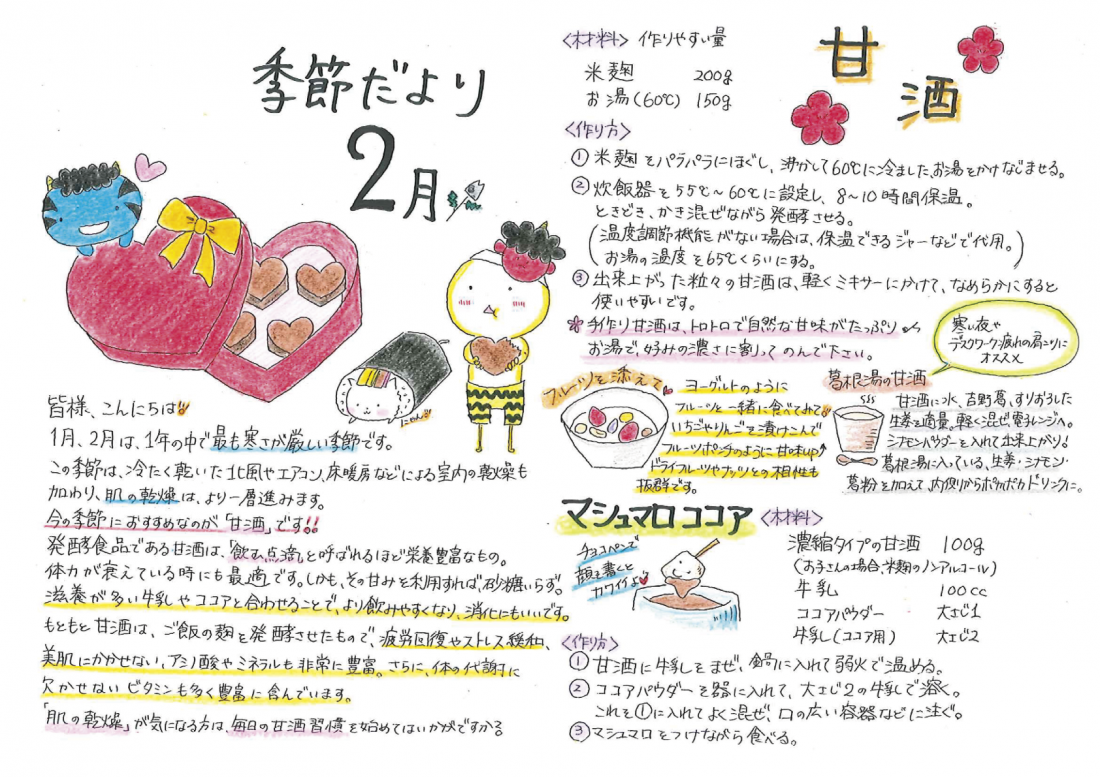 季節だより
2月
にゃん
皆様、こんにちは!!
1月、2月は、1年の中で最も寒さが厳しい季節です。
この季節は、冷たく乾いた北風やエアコン、床暖房などによる室内の乾燥も
加わり、肌の乾燥は、より一層進みます。
今の季節におすすめなのが「甘酒」です!!
発酵食品である甘酒は、「飲む点滴」と呼ばれるほど栄養豊富なもの。
体力が衰えている時にも最適です。しかも、その甘みを利用すれば、砂糖いらず。
滋養が多い牛乳やココアと合わせることで、より飲みやすくなり、消化にもいいです。
もともと甘酒は、ご飯の麹を発酵させたもので、疲労回復やストレス緩和、
美肌にかかせない、アミノ酸やミネラルも非常に豊富。さらに、体の代謝に
欠かせないビタミンも多く豊富に含んでいます。
「肌の乾燥」が気になる方は、毎日の甘酒習慣を始めてはいかがですか
甘酒
<材料> 作りやすい量
米麹 200g
お湯(60℃) 150g
<作り方>
① 米麹をパラパラにほぐし、沸かして60℃に冷ました、お湯をかけなじませる。
② 炊飯器を55℃~60℃に設定し、8~10時間保温。
ときどき、かき混ぜながら発酵させる。
(温度調節機能がない場合は、保温できるジャーなどで代用。
お湯の温度を65℃くらいにする。)
③ 出来上がった粒々の甘酒は、軽くミキサーにかけて、なめらかにすると
使いやすいです。
手作り甘酒は、トロトロで自然な甘味がたっぷり
お湯で、好みの濃さに割ってのんで下さい。
フルーツを添えて
ヨーグルトのように
フルーツと一緒に食べてみて
いちごやりんごを漬けこんで
フルーツポンチのように甘味up↑
ドライフルーツやナッツとの相性も
抜群です。
寒い夜や
デスクワーク疲れの肩こりに
オススメ
葛根湯の甘酒
甘酒に水、吉野葛、すりおろした
生姜を適量。軽く混ぜ電子レンジへ。
シナモンパウダーを入れて出来上がり!
葛根湯に入っている、生姜・シナモン・
葛粉を加えて、内側からポカポカドリンクに。
マシュマロココア
チョコペンで
顔を書くと
カワイイよ
<材料>
濃縮タイプの甘酒 100g
(お子さんの場合、米麹のノンアルコール)
牛乳 100cc
ココアパウダー 大さじ1
牛乳(ココア用) 大さじ2
<作り方>
① 甘酒に牛乳をまぜ、鍋に入れて弱火で温める。
② ココアパウダーを器に入れて、大さじ2の牛乳で溶く。
これを①に入れてよく混ぜ、口の広い容器などに注ぐ。
③ マシュマロをつけながら食べる。